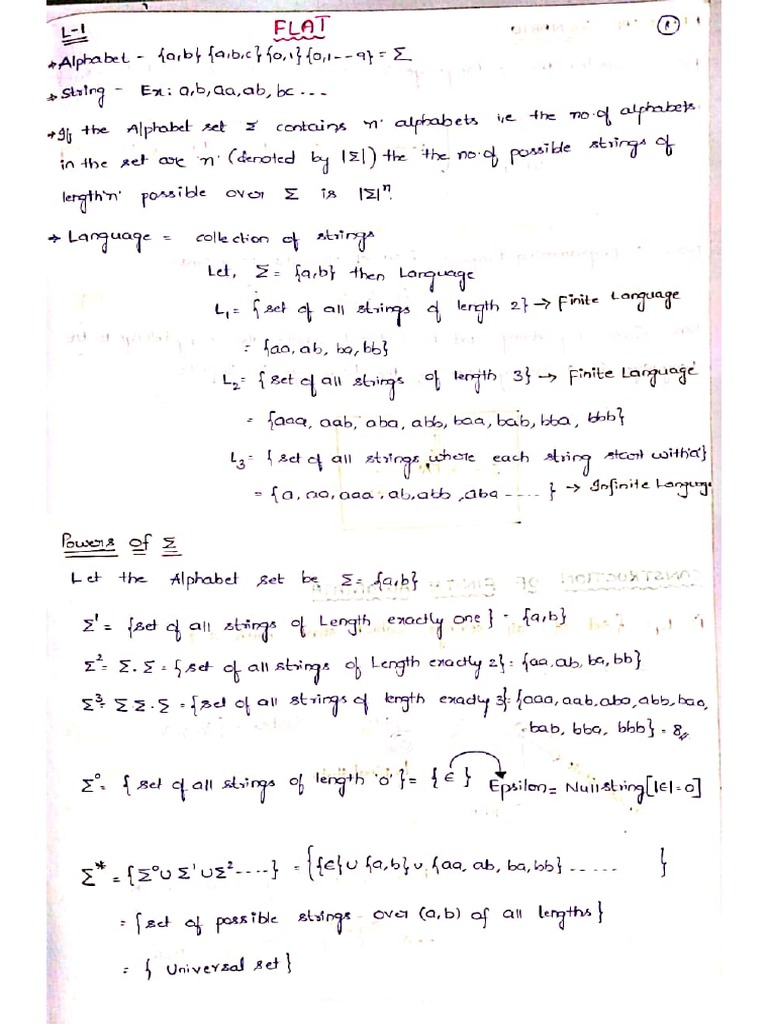 L-1 FLAT 1
→ Alphabet - {a,b} {a,b,c} {0,1} {0,1--9} = Σ
→ String - Ex: a,b,aa,ab, bc ...
→ If the Alphabet set Σ contains 'n' alphabets i.e the no.of alphabets
in the set are 'n' (denoted by |Σ|) the the no.of possible strings of
length 'n' possible over Σ is |Σ|ⁿ.
→ Language = collection of strings
Let, Σ = {a,b} then Language
L₁ = {set of all strings of length 2} → Finite Language
= {aa, ab, ba, bb}
L₂ = {set of all strings of length 3} → Finite Language
= {aaa, aab, aba, abb, baa, bab, bba, bbb}
L₃ = {set of all strings where each string start with 'a'}
= {a, aa, aaa, ab, abb, aba ----- } → Infinite Languag
Powers of Σ
Let the Alphabet set be Σ = {a,b}
Σ¹ = {set of all strings of Length exactly one} = {a,b}
Σ² = Σ.Σ = {set of all strings of Length exactly 2} = {aa, ab, ba, bb}
Σ³ = Σ Σ.Σ = {set of all strings of length exactly 3} = {aaa, aab, aba, abb, baa,
bab, bba, bbb} = 8
Σ⁰ = {set of all strings of length '0'} = {ϵ} Epsilon = Null string [|ϵ|=0]
Σ* = {Σ⁰ ∪ Σ¹ ∪ Σ² ----} = {{ϵ} ∪ {a,b} ∪ {aa, ab, ba, bb} ...... }
= {set of possible strings over (a,b) of all lengths}
= { Universal set}